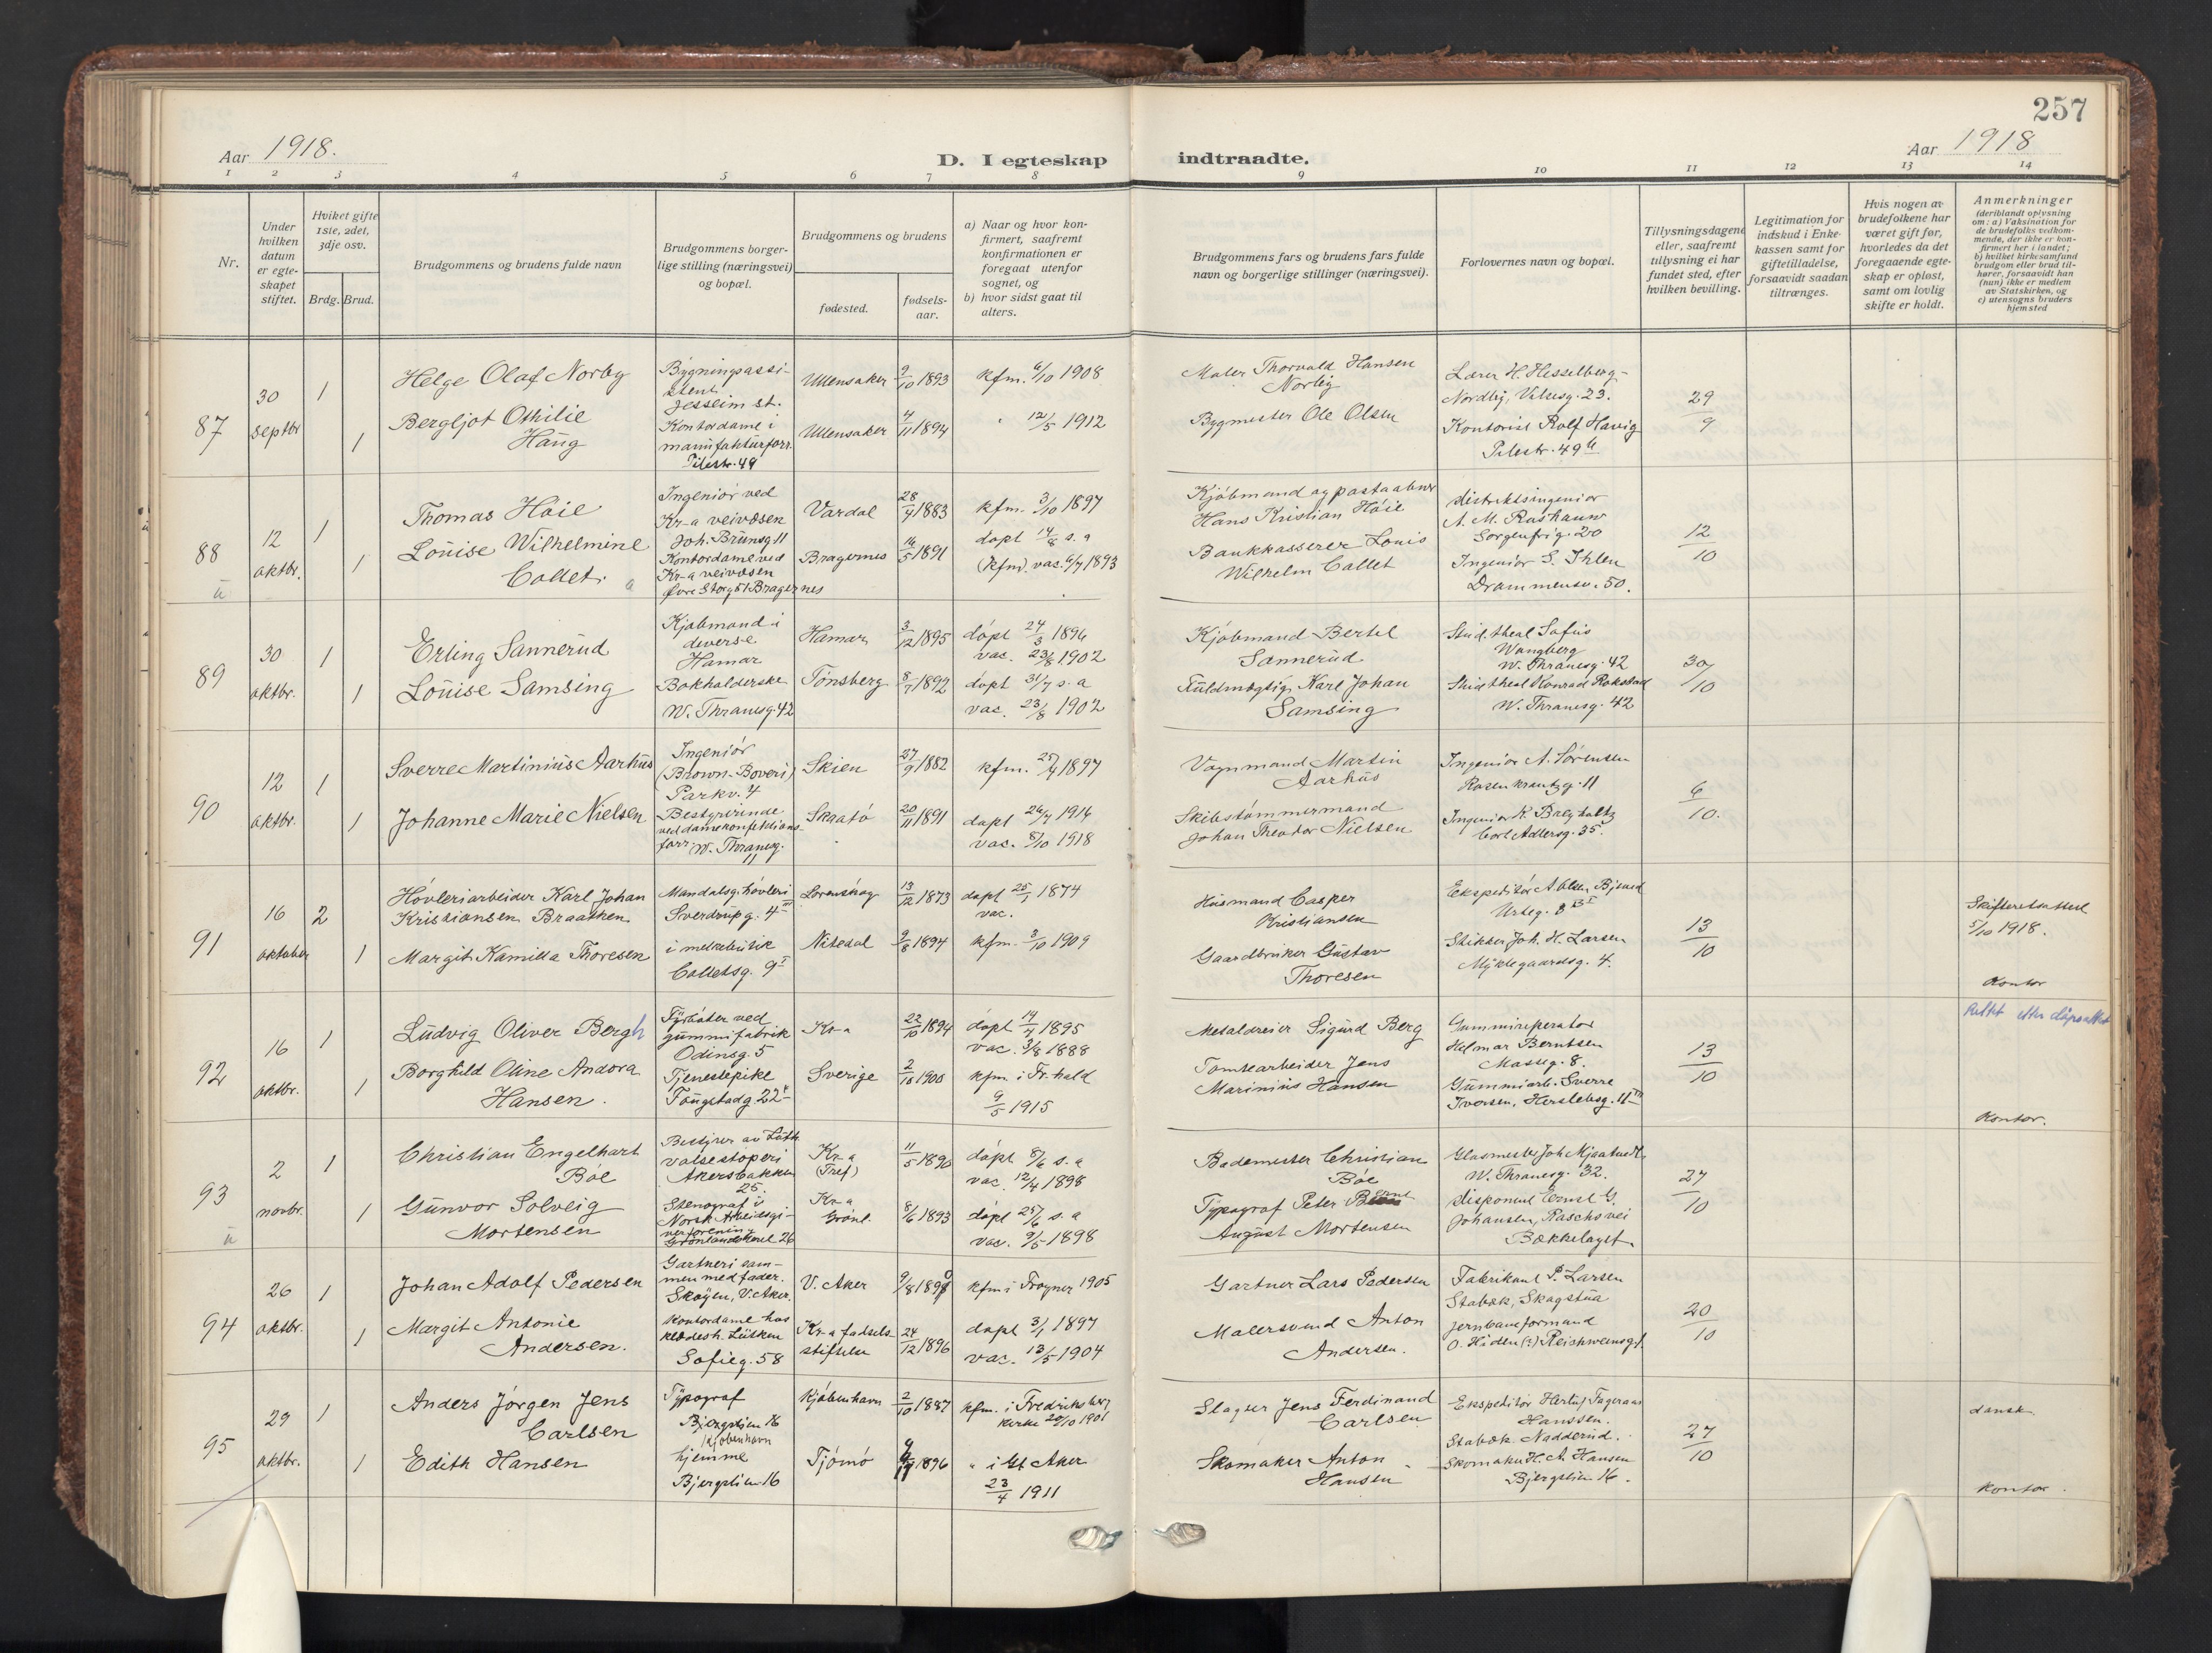 257
Aar 1918.
D. I egteskap indtraadte.
Aar 1918
1 2 3 4 5 6 7 8 9 10 11 12 13 14
Nr.
Under hvilken datum er egteskapet stiftet.
Hviket gifte 1ste, 2det, 3dje osv.
Brdg. Brud.
Brudgommens og brudens fulde navn
Brudgommens borgerlige stilling (næringsvei) og bopæl.
Brudgommens og brudens
fødested.
fødselsaar.
a) Naar og hvor konfirmert, saafremt konfirmationen er foregaat utenfor sognet, og
b) hvor sidst gaat til alters.
Brudgommens fars og brudens fars fulde navn og borgerlige stillinger (næringsvei).
Forlovernes navn og bopæl.
Tillysningsdagene eller, saafremt tillysning ei har fundet sted, efter hvilken bevilling.
Legitimation for indskud i Enkekassen samt for giftetilladelse, forsaavidt saadan tiltrænges.
Hvis nogen av brudefolkene har været gift før, hvorledes da det foregaaende egteskap er opløst, samt om lovlig skifte er holdt.
Anmerkninger
(deriblandt oplysning om: a) Vaksination for de brudefolks vedkommende, der ikke er konfirmert her i landet; b) hvilket kirkesamfund brudgom eller brud tilhører, forsaavidt han (hun) ikke er medlem av Statskirken, og c) utensogns bruders hjemsted
87
30 septbr
1
Helge Olaf Norby
Bygningsassistent
Jesseim st.
Ullensaker
9/10 1893
kfm. 4/10 1908
Maler Thorvald Hansen Norby
Lærer H. Hesselberg-
Nordby, Vibesg. 23.
29/9
1
Bergljot Othilie
Haug
Kontordame i
manufakturforr.
Pilestr. 49
Ullensaker
4/11 1894
" 12/5 1912
Bygmester Ole Olsen
Kontorist Rolf Havig
Pilestr. 49
88
12 oktbr.
1
Thomas Höie
Ingeniør ved
Kr-a veivæsen
Joh. Brunsg 11
Vardal
28/4 1883
kfm. 3/10 1897
Kjøbmand og postaabner
Hans Kristian Höie
distriktsingeniør
Sorgenfrig. 20
12/10
1
Louise Wilhelmine
Collet.
Kontordame ved
Kr-a veivæsen
Øvre Storg 51 Bragernes
Bragernes
16/5 1891
døpt 14/8 s. a
(kfm). vac. 6/7 1893
Bankkasserer Louis
Wilhelm Collet
Ingeniør S. Ihlen
Drammensv. 50.
89
30 oktbr.
1
Erling Sannerud
Kjøbmand i
diverse
Hamar
Hamar
3/12 1895
døpt 24/3 1896
vac. 23/8 1902
Kjøbmand Bertel
Sannerud
Stud. theol Sofus
Wangberg
W. Thranesg. 42
30/10
1
Louise Samsing
Bokholderske
W. Thranesg. 42
Tønsberg
8/7 1892
døpt 31/7 s. a
vac. 23/8 1902
Fuldmægtig Karl Johan
Samsing
Stud theol Konrad Rokstad
W. Thranesg. 42
90
12 oktbr.
1
Sverre Martinius Aarhus
Ingeniør
(Brown-Boveri)
Parkv. 4
Skien
27/9 1882
kfm. 25/4 1897
Vognmand Martin
Aarhus
Ingeniør A. Sørensen
Rosenkrantzg. 11
6/10.
1
Johanne Marie Nielsen
Bestyrerinde
ved damekonfektions
forr. W. Thranesg. 11
Skaatø
20/11 1891
døpt 26/7 1914
vac. 5/10 1918
Skibstømmermand
Johan Theodor Nielsen
Cort Adlersg. 35.
91
16 oktober
2
Høvleriarbeider Karl Johan
Kristiansen Braathen
Mandalsg. høvleri
Sverdrupg. 4 III
Lørenskog
13/12 1873
døpt 25/1 1874
vac.
Husmand Casper
Kristiansen
Urteg. 3
13/10
Skifteretsattest
5/10 1918.
1
Margit Kamilla Thoresen
i melkebutik
Colletsg. 9 I
Nitedal
9/8 1894
kfm. 3/10 1909
Gaardbruker Gustav
Thoresen
Stikker Joh. H. Larsen
Myklegaardsg. 4.
Kontor
92
16 oktbr.
1
Ludvig Oliver Bergh
Fyrbøter ved
gummifabrik
Odinsg. 5
Kr-a
22/10 1894
døpt 14/7 1895
vac. 3/8 1888
Metaldreier Sigurd Berg
Gummireperatør
Helmar Berntsen
Masseg. 8.
13/10
Rettet efter dåpsattest
1
Borghild Oline Andora
Hansen.
Tjenestepike
Fougstadg. 22
Sverige
2/10 1900
kfm. i Fr. hald
9/5 1915
Tomtearbeider Jens
Marinius Hansen
Gummiarb. Sverre
Iversen, Herslebsg. 11 III
Kontor.
93
2 novbr.
1
Christian Engelhart
Böe
Bestyrer av Luth.
valsestøperi
Akersbakken
25.
Kr-a
(Tref)
11/5 1890
døpt 8/6 s. a
vac. 12/4 1898
Bademester Christian
Böe
Glasmester Joh. Mjaatvedt,
W. Thranesg. 32.
27/10
1
Gunvor Solveig
Mortensen
Stenograf i
Norsk Arbeidsgi-
verforening
Grønlandskaret 26
Kr-a
Grönl.
8/6 1893
døpt 25/6 s. a
vac. 9/5 1898
Typograf Peter Bernt
August Mortensen
disponent Ernst G.
Johansen, Raschs vei
Bækkelaget.
94
26 oktbr.
1
Johan Adolf Pedersen
Gartneri sam-
men med fader.
Skøyen, V. Aker.
V. Aker
9/8 1890
kfm i Frogner 1905
Gartner Lars Pedersen
Fabrikant P. Larsen
Stabæk, Skogstua
20/10
1
Margit Antonie
Andersen.
Kontordame hos
klædesh. Lütken
Sofieg. 58
Kr-a fødsels
stiftelse
24/12 1896
døpt 3/1 1897
vac. 13/5 1904
Malersvend Anton
Andersen.
jernbaneformand
95
29 oktbr.
1
Anders Jørgen Jens
Carlsen
Typograf
Bjergstien 16
Kjøbenhavn
Kjøbenhavn
2/10 1887
kfm. i Fredriksberg
kirke 20/10 1901
Slagter Jens Ferdinand
Carlsen
Hanssen.
Stabæk. Nadderud.
27/10
dansk.
1
Edith Hansen
hjemme
Bjergstien 16
Tjömö
1896
" i Gl Aker
23/4 1911
Skomaker Anton
Hansen
Skomaker H. A. Hansen
Bjergstien 16.
Kontor.